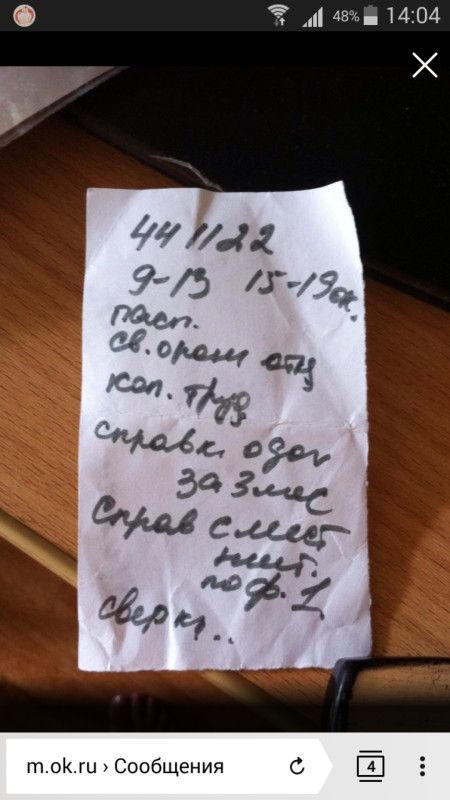 48% 14:04
441122
9-13 15-19
пасп.
св. о рож отц
коп. труд
справк. о дох
за 3 мес
справ с мест
жит.
по ф. 1
m.ok.ru › Сообщения
4